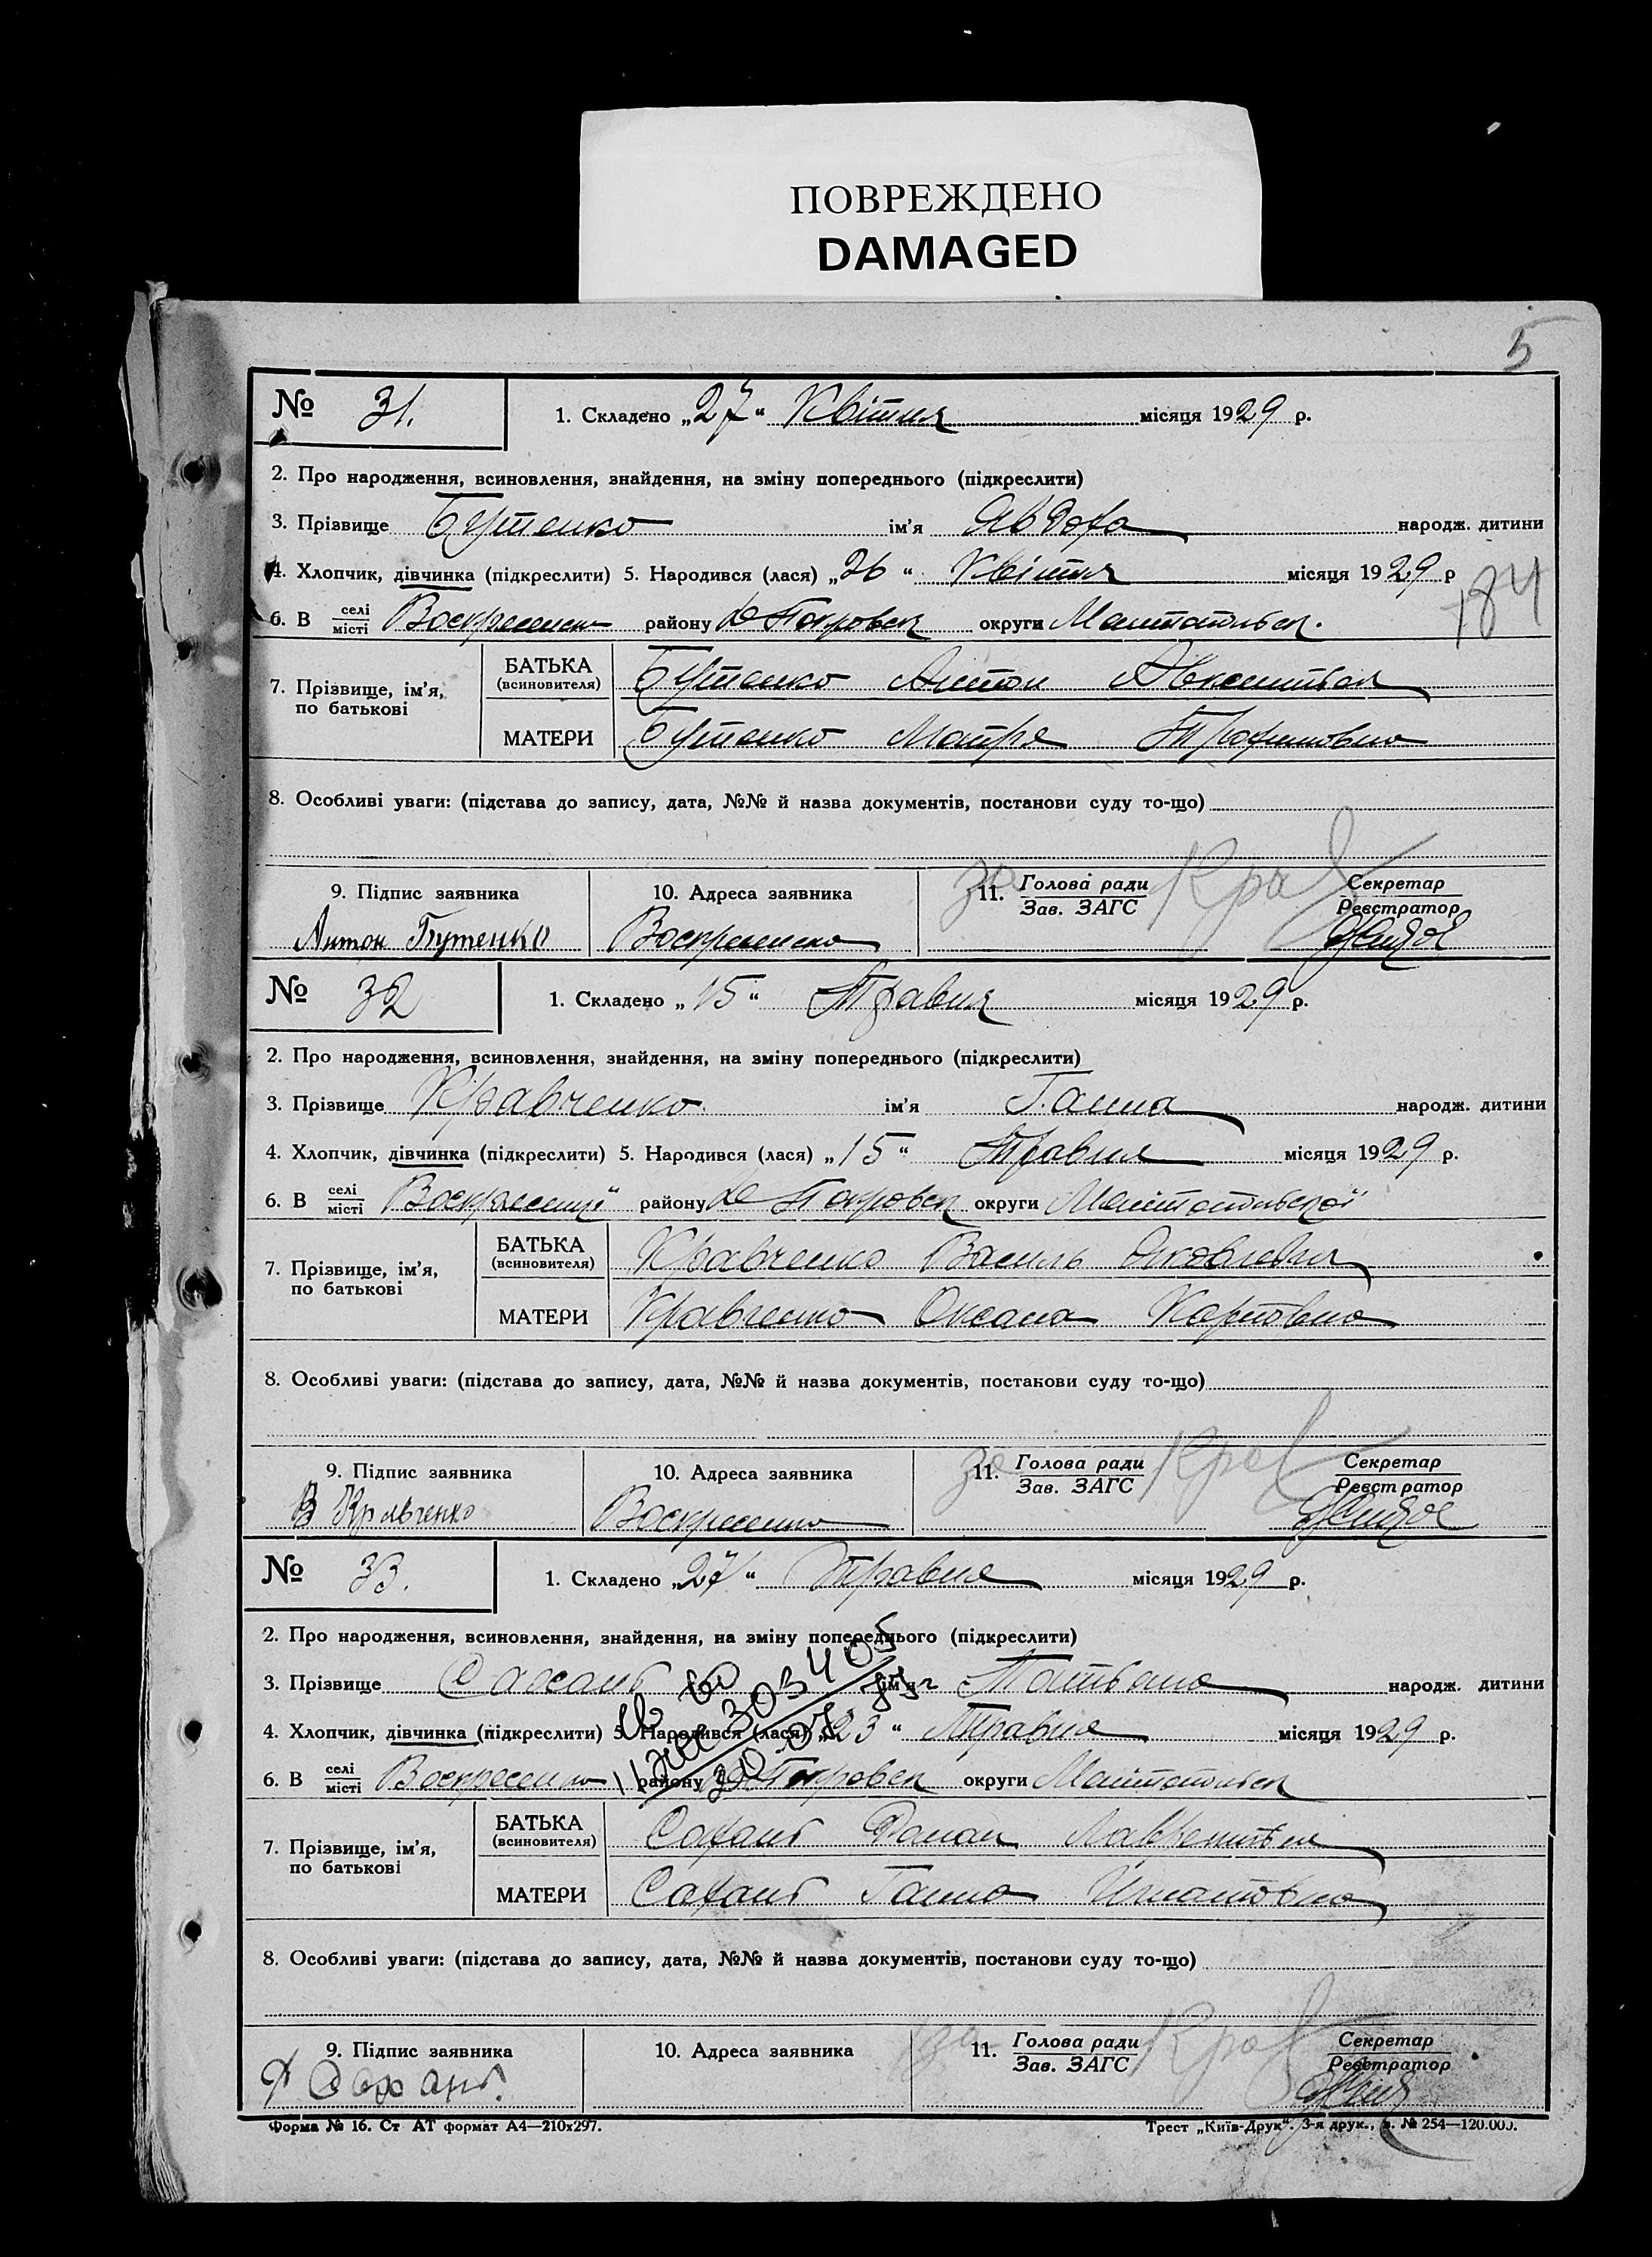 ПОВРЕЖДЕНО
DAMAGED
5
№ 31. 1. Складено „27“ Квітня місяця 1929 р.
2. Про народження, всиновлення, знайдення, на зміну попереднього (підкреслити)
3. Прізвище Бутенко ім'я Явдоха народж. дитини
4. Хлопчик, дівчинка (підкреслити) 5. Народився (лася) „26“ Квітня місяця 1929 р
184
6. В селі/місті Воскресенка району Покровск округи
7. Прізвище, ім'я, по батькові
БАТЬКА (всиновителя) Бутенко Антон
МАТЕРИ Бутенко Мотря Трофимовна
8. Особливі уваги: (підстава до запису, дата, №№ й назва документів, постанови суду то-що)
9. Підпис заявника 10. Адреса заявника За 11. Голова ради/Зав. ЗАГС Крав Секретар/Реєстратор
Антон Бутенко Воскресенка
№ 32 1. Складено „15“ Травня місяця 1929 р.
2. Про народження, всиновлення, знайдення, на зміну попереднього (підкреслити)
3. Прізвище Кравченко ім'я Ганна народж. дитини
4. Хлопчик, дівчинка (підкреслити) 5. Народився (лася) „15“ Травня місяця 1929 р.
6. В селі/місті району Покровск округи
7. Прізвище, ім'я, по батькові
БАТЬКА (всиновителя) Кравченко Василь Яковлевич
МАТЕРИ Кравченко Оксана Карповна
8. Особливі уваги: (підстава до запису, дата, №№ й назва документів, постанови суду то-що)
9. Підпис заявника 10. Адреса заявника За 11. Голова ради/Зав. ЗАГС Крав Секретар/Реєстратор
В Кравченко Воскресенка
№ 33. 1. Складено „27“ Травня місяця 1929 р.
2. Про народження, всиновлення, знайдення, на зміну попереднього (підкреслити)
3. Прізвище Сахань ім'я Татьяна народж. дитини
4. Хлопчик, дівчинка (підкреслити) 5. Народився (лася) „23“ Травня місяця 1929 р.
6. В селі/місті Воскресенка району Покровск округи
7. Прізвище, ім'я, по батькові
БАТЬКА (всиновителя) Сахань
МАТЕРИ Сахань Ганна Игнатовна
8. Особливі уваги: (підстава до запису, дата, №№ й назва документів, постанови суду то-що)
9. Підпис заявника 10. Адреса заявника за 11. Голова ради/Зав. ЗАГС Крав Секретар/Реєстратор
Сахань
Форма № 16. Ст АТ формат А4—210x297. Трест „Київ-Друк“. 3-я друк., з. № 254—120.000.